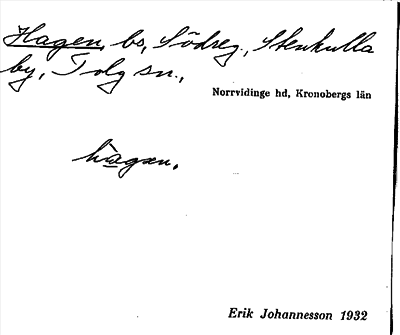 Hagen, bs, Södreg., Stenkulla
by, Tolg sn.,
Norrvidinge hd, Kronobergs län
hàgən.
Erik Johannesson 1932